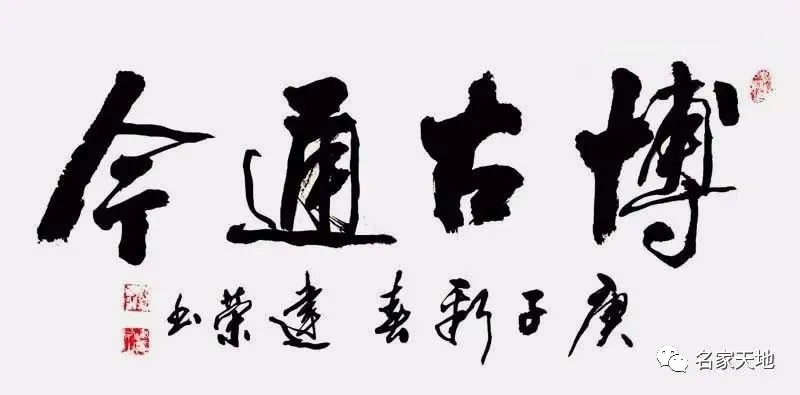 博古通今
庚子新春 建荣书
名家天地